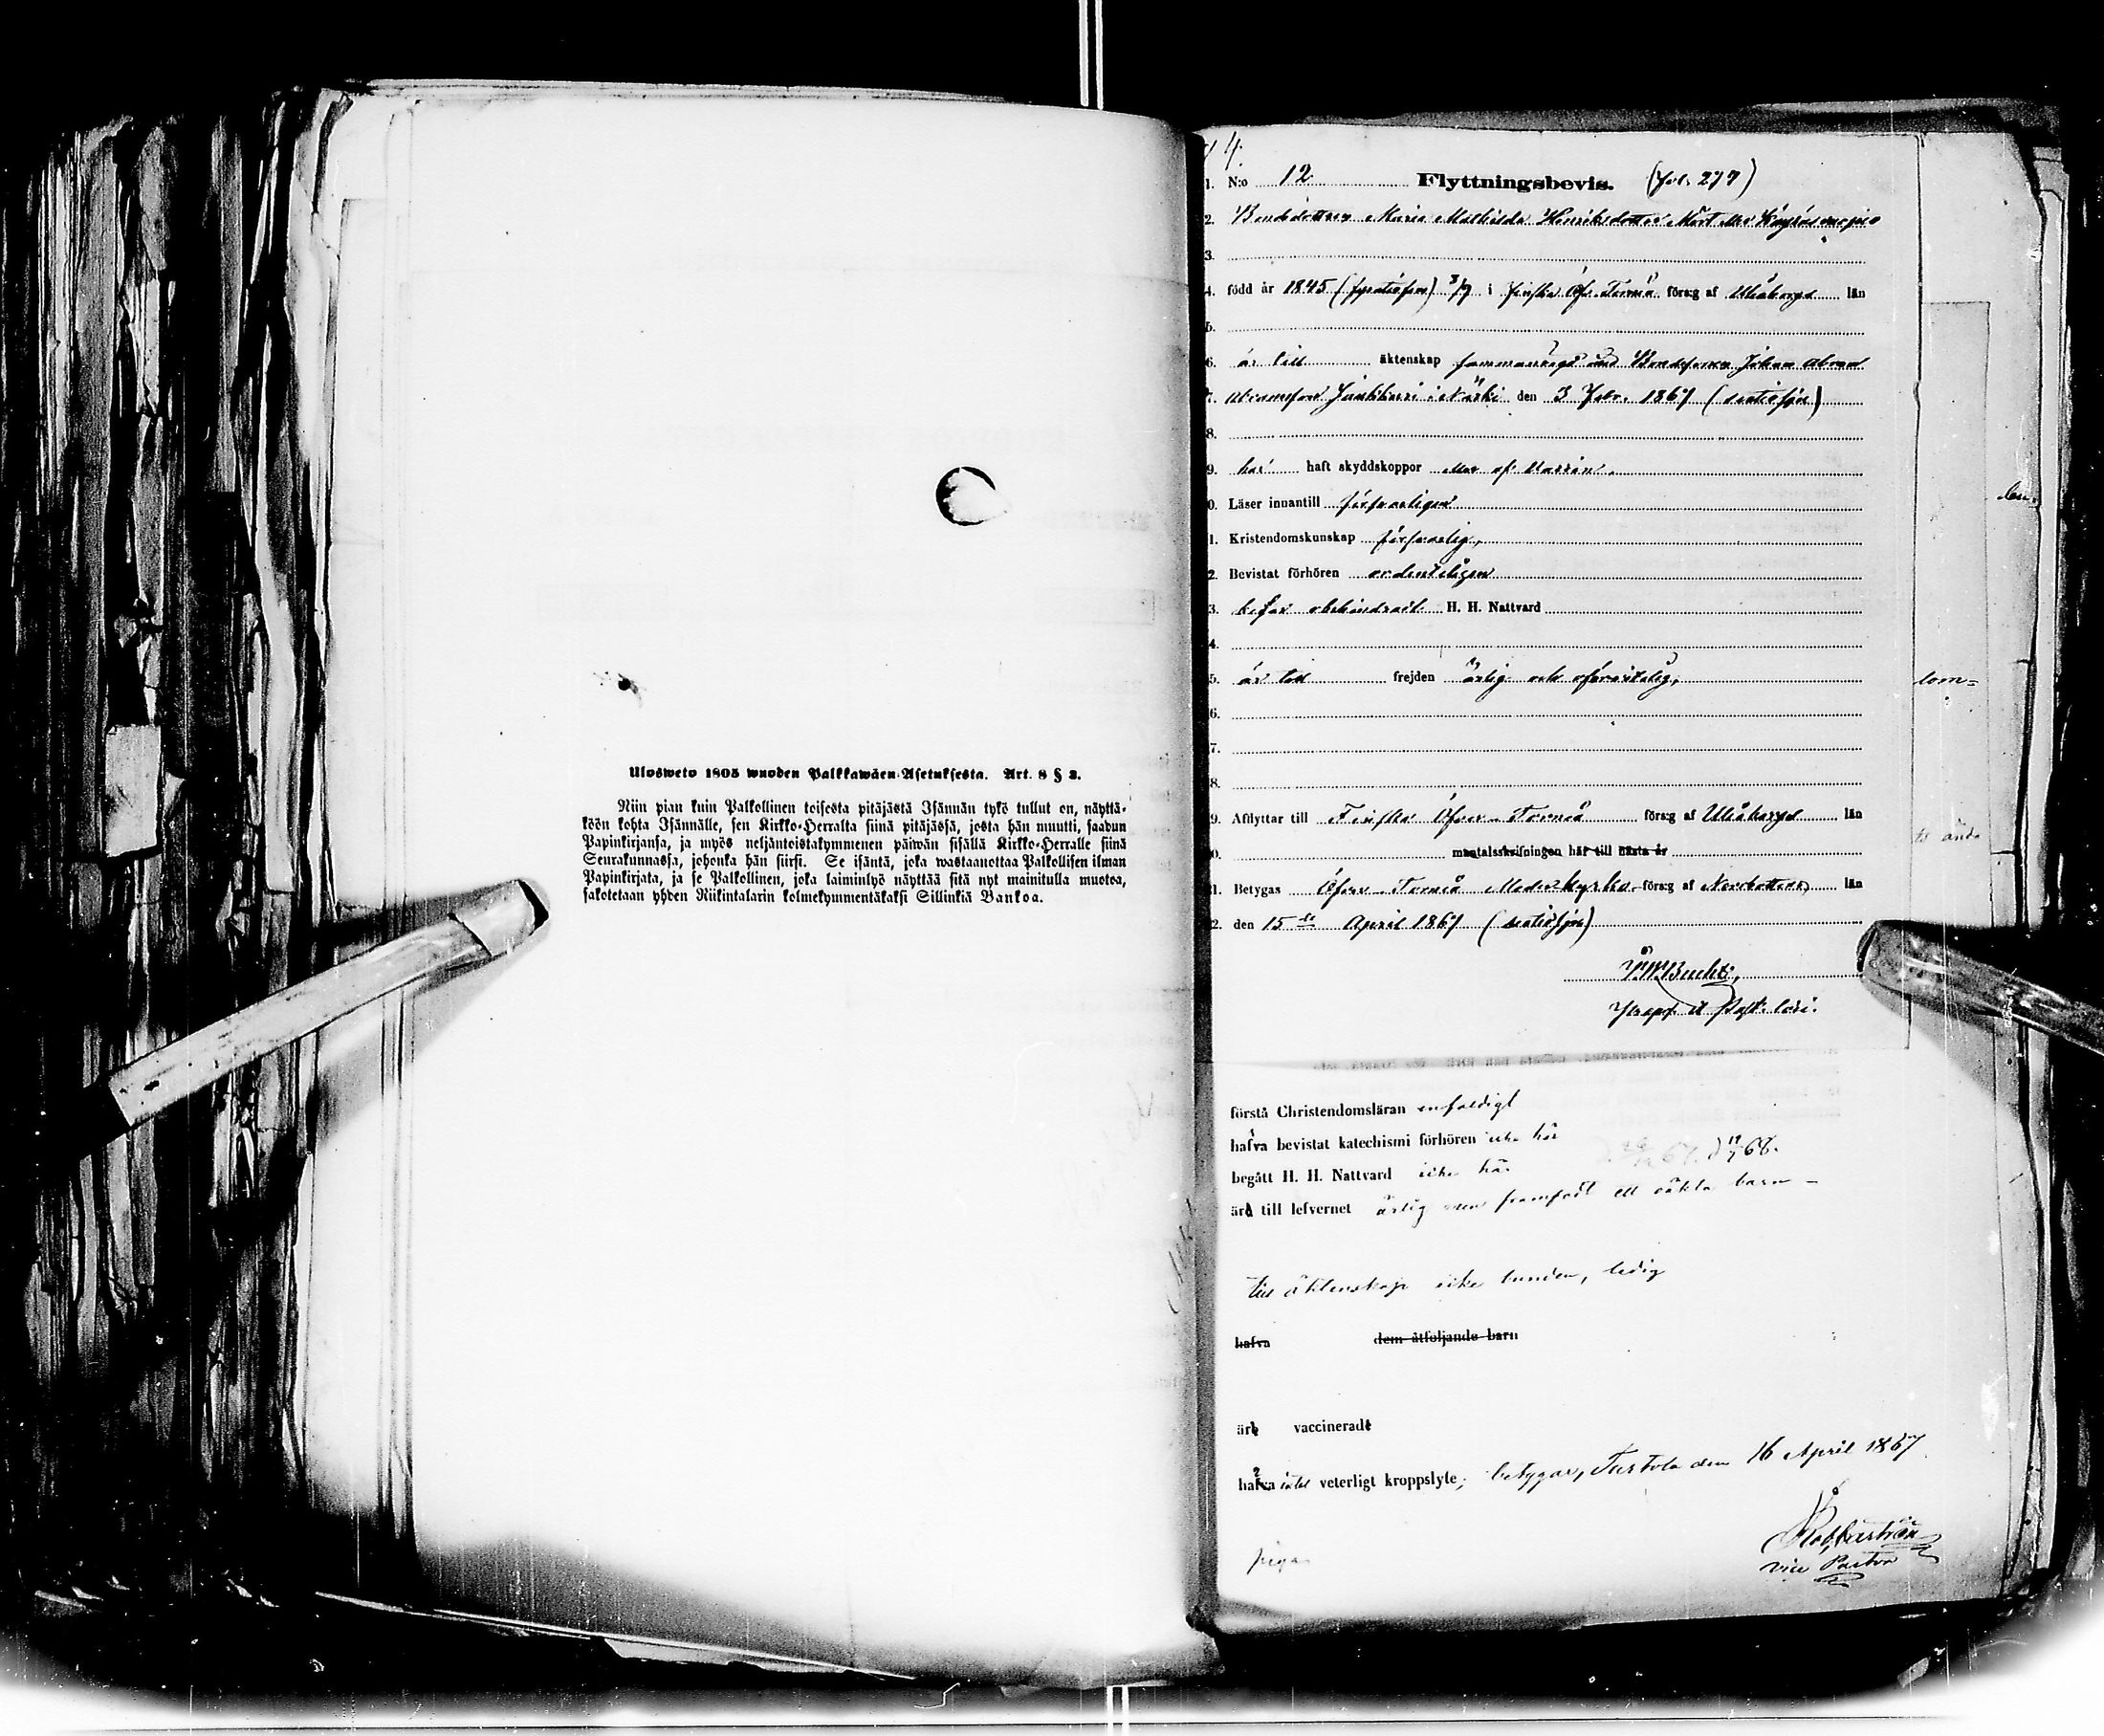 Ulosweto 1805 wuoden Palkkawäen Asetuksesta. Art. 8 § 3.
Niin pian kuin Palkollinen toisesta pitäjästä Isännän tykö tullut on, näyttä-
köön kohta Isännälle, sen Kirkko-Herralta siinä pitäjässä, josta hän muutti, saadun
Papinkirjansa, ja myös neljäntoistakymmenen päiwän sisällä Kirkko-Herralle siinä
Seurakunnassa, johonka hän siirsi. Se isäntä, joka wastaanottaa Palkollisen ilman
Papinkirjata, ja se Palkollinen, joka laiminlyö näyttää sitä nyt mainitulla muotoa,
sakotetaan yhden Riikintalarin kolmekymmentäkaksi Sillinkiä Bankoa.
4.
1. N:o 12 Flyttningsbevis. (fol. 277)
2. Bondedottren Maria Mathilda Henriksdotter
3.
4. född år 1845 (fyratiofem) 3/9 i finska Öf. Torneå förs:g af Uleåborgs län
5.
6. är till äktenskap sammanvigd med Bondesonen Johan Abram
7. Abramsson i Närki den 3 Febr. 1867 (sextiosju)
8.
9. har haft skyddskoppor af vaccin.
0. Läser innantill försvarligen
1. Kristendomskunskap försvarlig,
2. Bevistat förhören ordentligen
3. obehindrad H. H. Nattvard
4.
5. är till frejden ärlig och oförvitelig,
6.
7.
8.
9. Afflyttar till Finska Öfver-Torneå förs:g af Uleåborgs län
0. mantalsskrifningen här till nästa år
1. Betygas Öfver-Torneå Moderkyrko förs:g af Norrbottens län
2. den 15de April 1867 (sextiosju)
Past.
förstå Christendomsläran enfaldigt
hafva bevistat katechismi förhören icke här
begått H. H. Nattvard icke här
68.
är till lefvernet ärlig men framfödt ett oäkta barn –
till äktenskap icke bunden, ledig
hafva dem åtföljande barn
är vaccinerad
hafva intet veterligt kroppslyte; betygar, Turtola den 16 April 1867
vice Pastor
pigan
lom=
ände